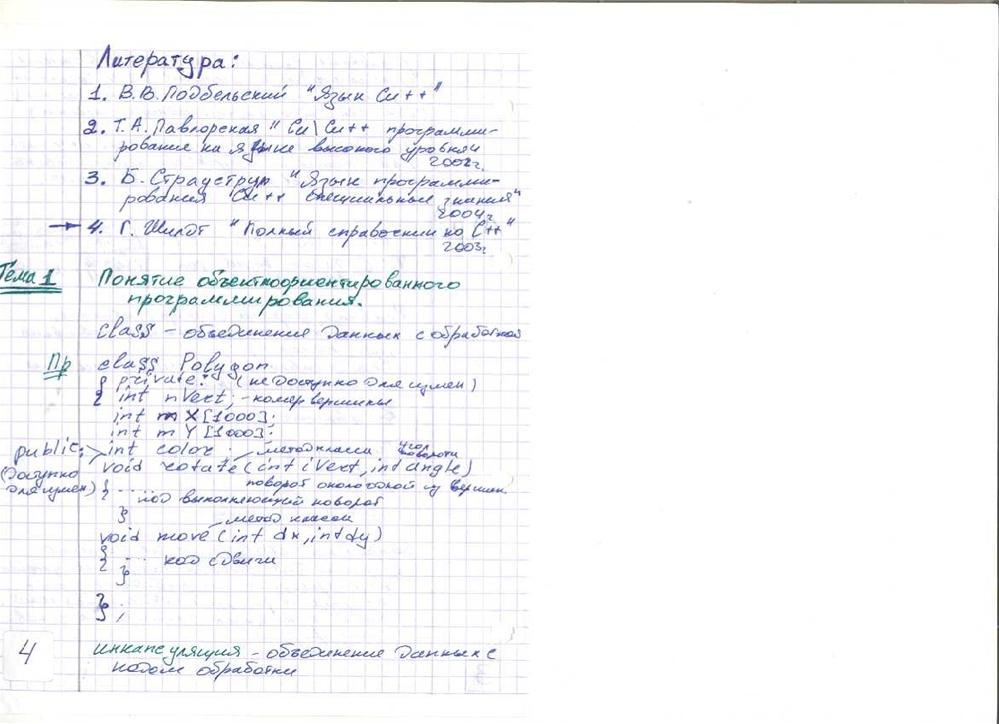 Литература:
1. В.В. Подбельский "Язык Си++"
2. Т.А. Павлорская "Си\Си++ программи-
рование на языке высокого уровня
2002г.
3. Б. Страуструп "Язык программи-
рования Си++ специальные знания"
2004г.
→ 4. Г. Шилдт "Полный справочник по С++"
2003г.
Тема 1 Понятие объектноориентированного
программирования.
class – объединения данных с обработкой
Пр class Polygon
{ private: (не доступно для измен)
int nVert; - номер вершины
int mX[1000];
int mY[1000];
public: int color; метод класса угол поворота
(доступно для измен) void rotate(int iVert, int angle)
поворот около одной из вершин
{ ... код выполняющий поворот
}
метод класса
void move(int dx, int dy)
{ ... код сдвига
}
};
инкапсуляция - объединение данных с
кодом обработки
4